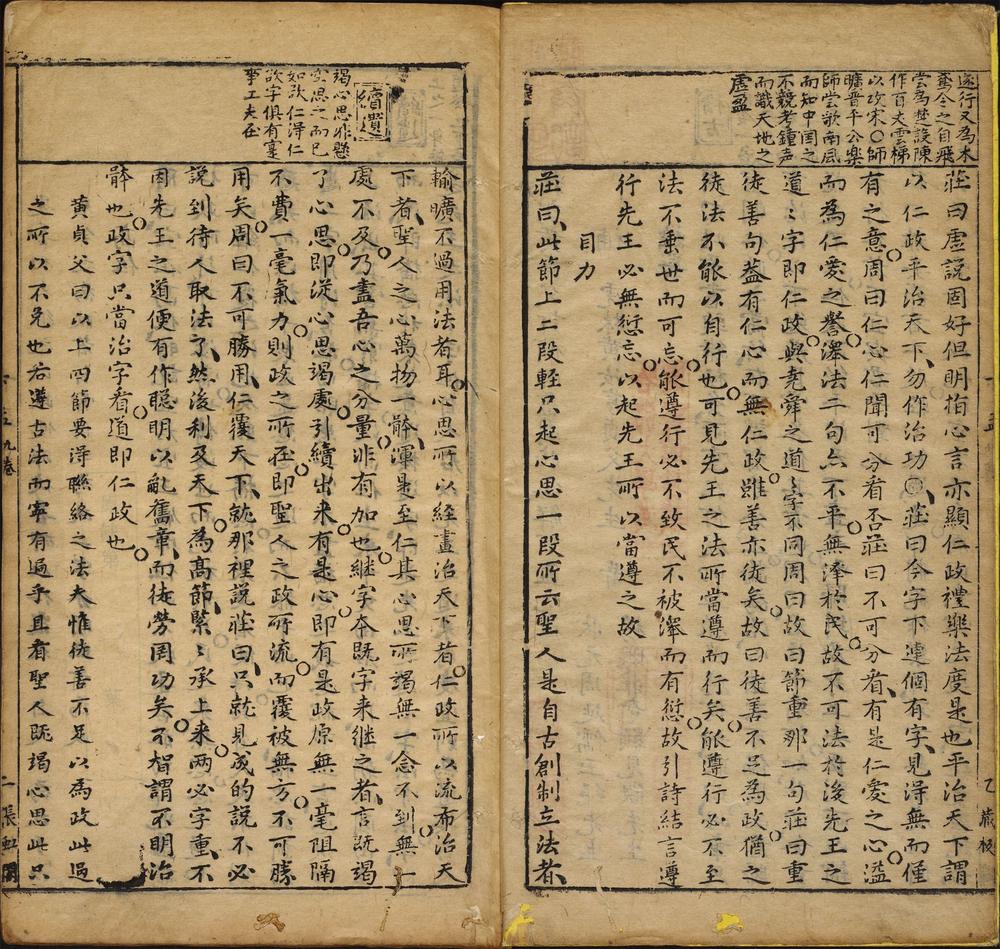 遂行又為木
鳶今之自飛
嘗為楚設陳
作百丈雲梯
以攻宋〇師
曠晉平公樂
師嘗歌南風
而知中国之
不競考鐘声
而識天地之
虛盈
莊曰虛說固好但明指心言亦顯仁政禮樂法度是也平治天下謂
以仁政平治天下勿作治功〇莊曰今字下連個有字見淂無而僅
有之意周曰仁心仁聞可分看否莊曰不可分看有是仁愛之心溢
而為仁愛之譽澤法二句亦不平無澤於民故不可法於後先王之
道〻字即仁政與堯舜之道〻字不同周曰故曰節重那一句莊曰重
徒善句葢有仁心而無仁政雖善亦徒矣故曰徒善不足為政猶之
徒法不能以自行也可見先王之法所當遵而行矣能遵行必不至
法不垂世而可忘能遵行必不致民不被澤而有愆故引詩結言遵
行先王必無愆忘以起先王所以當遵之故
目力
莊曰此節上二段軽只起心思一段所云聖人是自古創制立法者
乙藏板
續遺
竭心思非懸
空思之而已
如欲仁得仁
欲字俱有寔
事工夫在
輸曠不過用法者耳心思所以経畫治天下者仁政所以流布治天
下者聖人之心萬物一骵渾是至仁其心思所竭無一念不到無一
處不及乃盡吾心之分量非有加也継字夲既字来継之者言既竭
了心思即從心思竭處引續出来有是心即有是政原無一毫阻隔
不費一毫氣力則政之所在即聖人之政所流而覆被無方不可勝
用矣周曰不可勝用仁覆天下就那裡説莊曰只就見成的說不必
説到待人取法了然後利及天下為髙節緊〻承上来两必字重不
因先王之道便有作聰明以亂舊章而徒勞罔功矣不智謂不明治
骵也政字只當治字看道即仁政也
黄貞父曰以上四節要淂聯絡之法夫惟徒善不足以為政此過
之所以不免也若遵古法而寧有過乎且看聖人既竭心思此只
孟九卷
二張虹閣